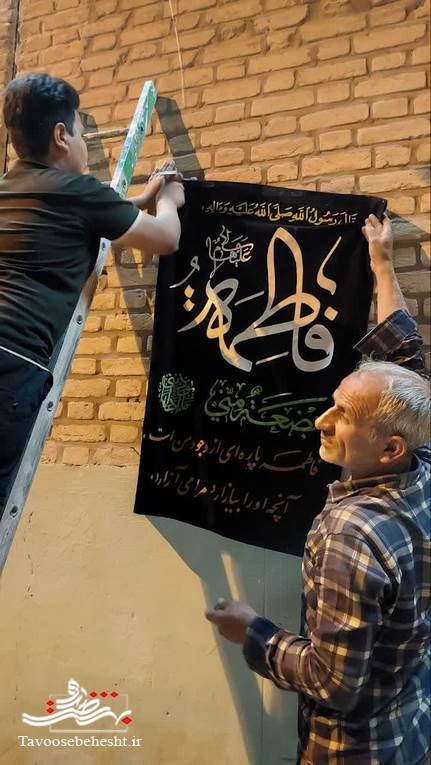 قالَ رَسُولُ اللهِ صَلَّی اللهُ عَلَیهِ وَ آلِهِ:
فاطمة
بَضعَةٌ مِنّي
فاطمه پاره ای از وجود من است
آنچه او را بیازارد مرا می آزارد.
Tavoosebehesht.ir